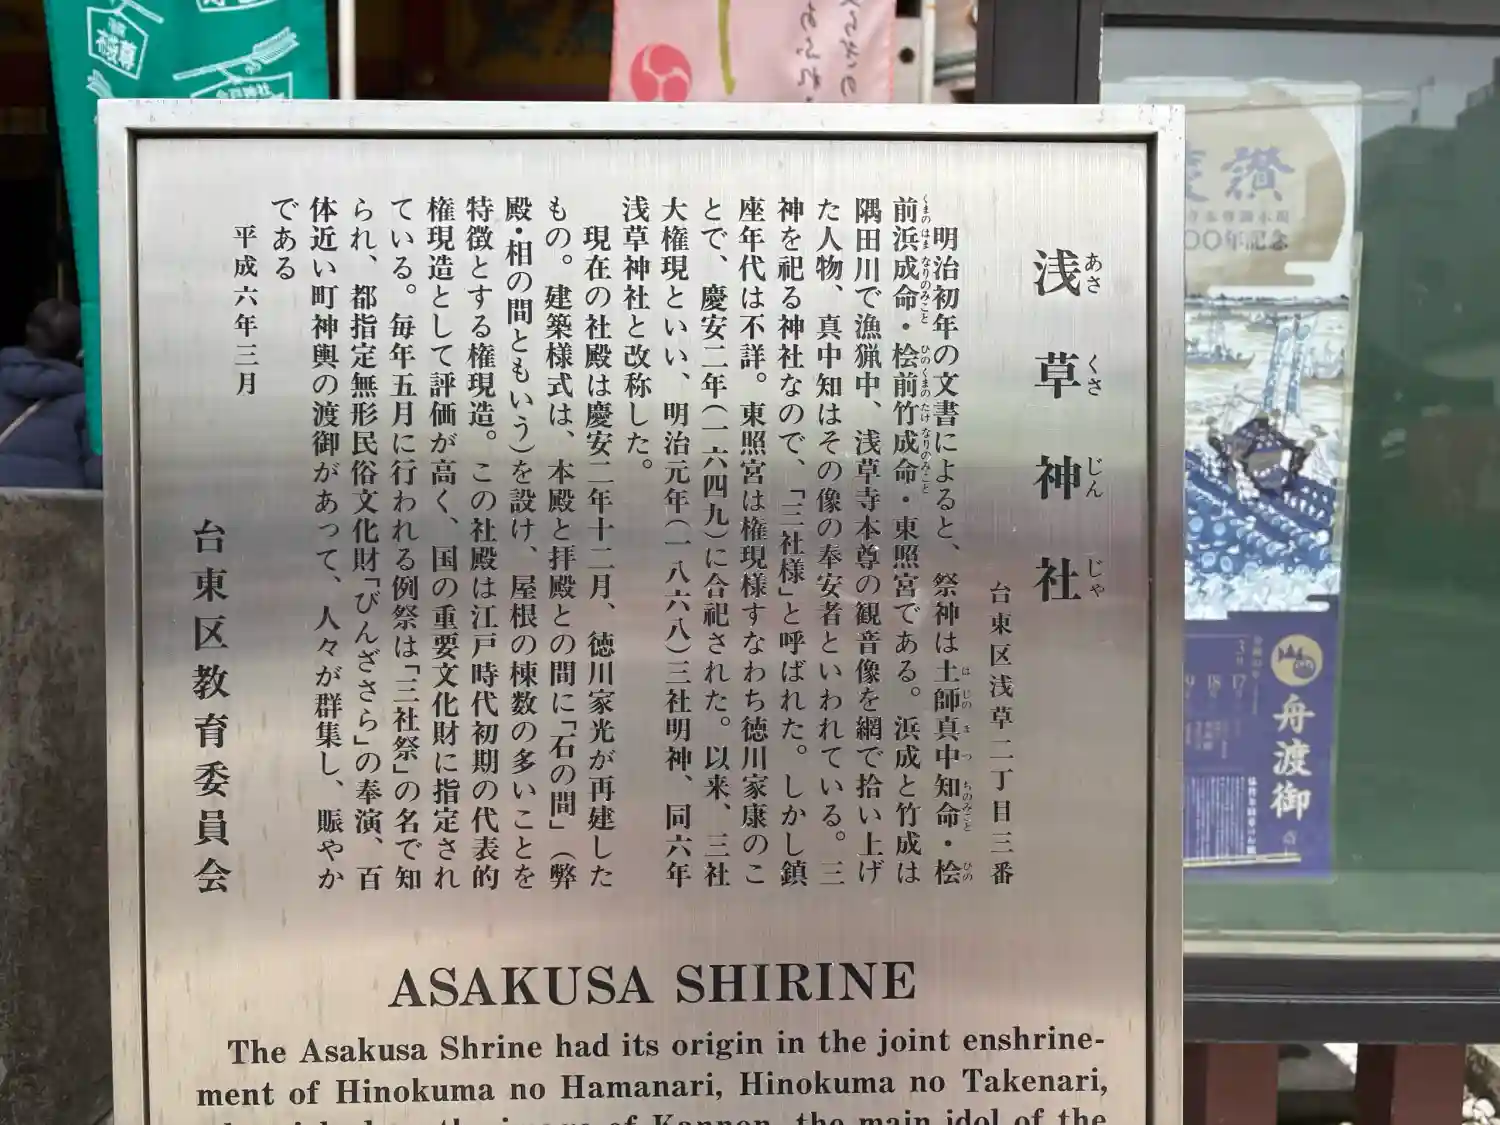 浅草神社
あさくさじんじゃ
台東区浅草二丁目三番
明治初年の文書によると、祭神は土師真中知命・桧
はじのまつちのみこと
ひの
前浜成命・桧前竹成命・東照宮である。浜成と竹成は
くまのはまなりのみこと
ひのくまのたけなりのみこと
隅田川で漁猟中、浅草寺本尊の観音像を網で拾い上げ
た人物、真中知はその像の奉安者といわれている。三
神を祀る神社なので、「三社様」と呼ばれた。しかし鎮
座年代は不詳。東照宮は権現様すなわち徳川家康のこ
とで、慶安二年(一六四九)に合祀された。以来、三社
大権現といい、明治元年(一八六八)三社明神、同六年
浅草神社と改称した。
現在の社殿は慶安二年十二月、徳川家光が再建した
もの。建築様式は、本殿と拝殿との間に「石の間」(弊
殿・相の間ともいう)を設け、屋根の棟数の多いことを
特徴とする権現造。この社殿は江戸時代初期の代表的
権現造として評価が高く、国の重要文化財に指定され
ている。毎年五月に行われる例祭は「三社祭」の名で知
られ、都指定無形民俗文化財「びんざさら」の奉演、百
体近い町神輿の渡御があって、人々が群集し、賑やか
である
平成六年三月
台東区教育委員会
ASAKUSA SHIRINE
The Asakusa Shrine had its origin in the joint enshrine-
ment of Hinokuma no Hamanari, Hinokuma no Takenari,
image of Kannon, the main idol of the
讃
年記念
舟渡御
3月
17
18